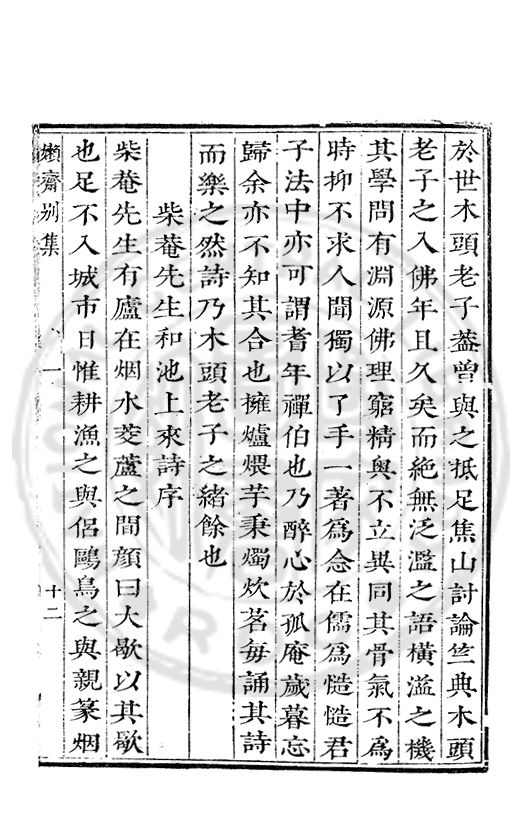 於世木頭老子葢曾與之抵足焦山討論竺典木頭
老子之入佛年且久矣而絶無泛濫之語横溢之機
其學問有淵源佛理窮精奥不立異同其骨氣不爲
時抑不求人聞獨以了手一著爲念在儒爲慥慥君
子法中亦可謂耆年禪伯也乃醉心於孤庵歲暮忘
歸余亦不知其合也擁爐煨芋秉燭炊茗每誦其詩
而樂之然詩乃木頭老子之緒餘也
柴菴先生和池上來詩序
柴菴先生有廬在烟水菱蘆之間顔曰大歇以其歇
也足不入城市日惟耕漁之與侶鷗鳥之與親篆烟
嬾齋别集
十二